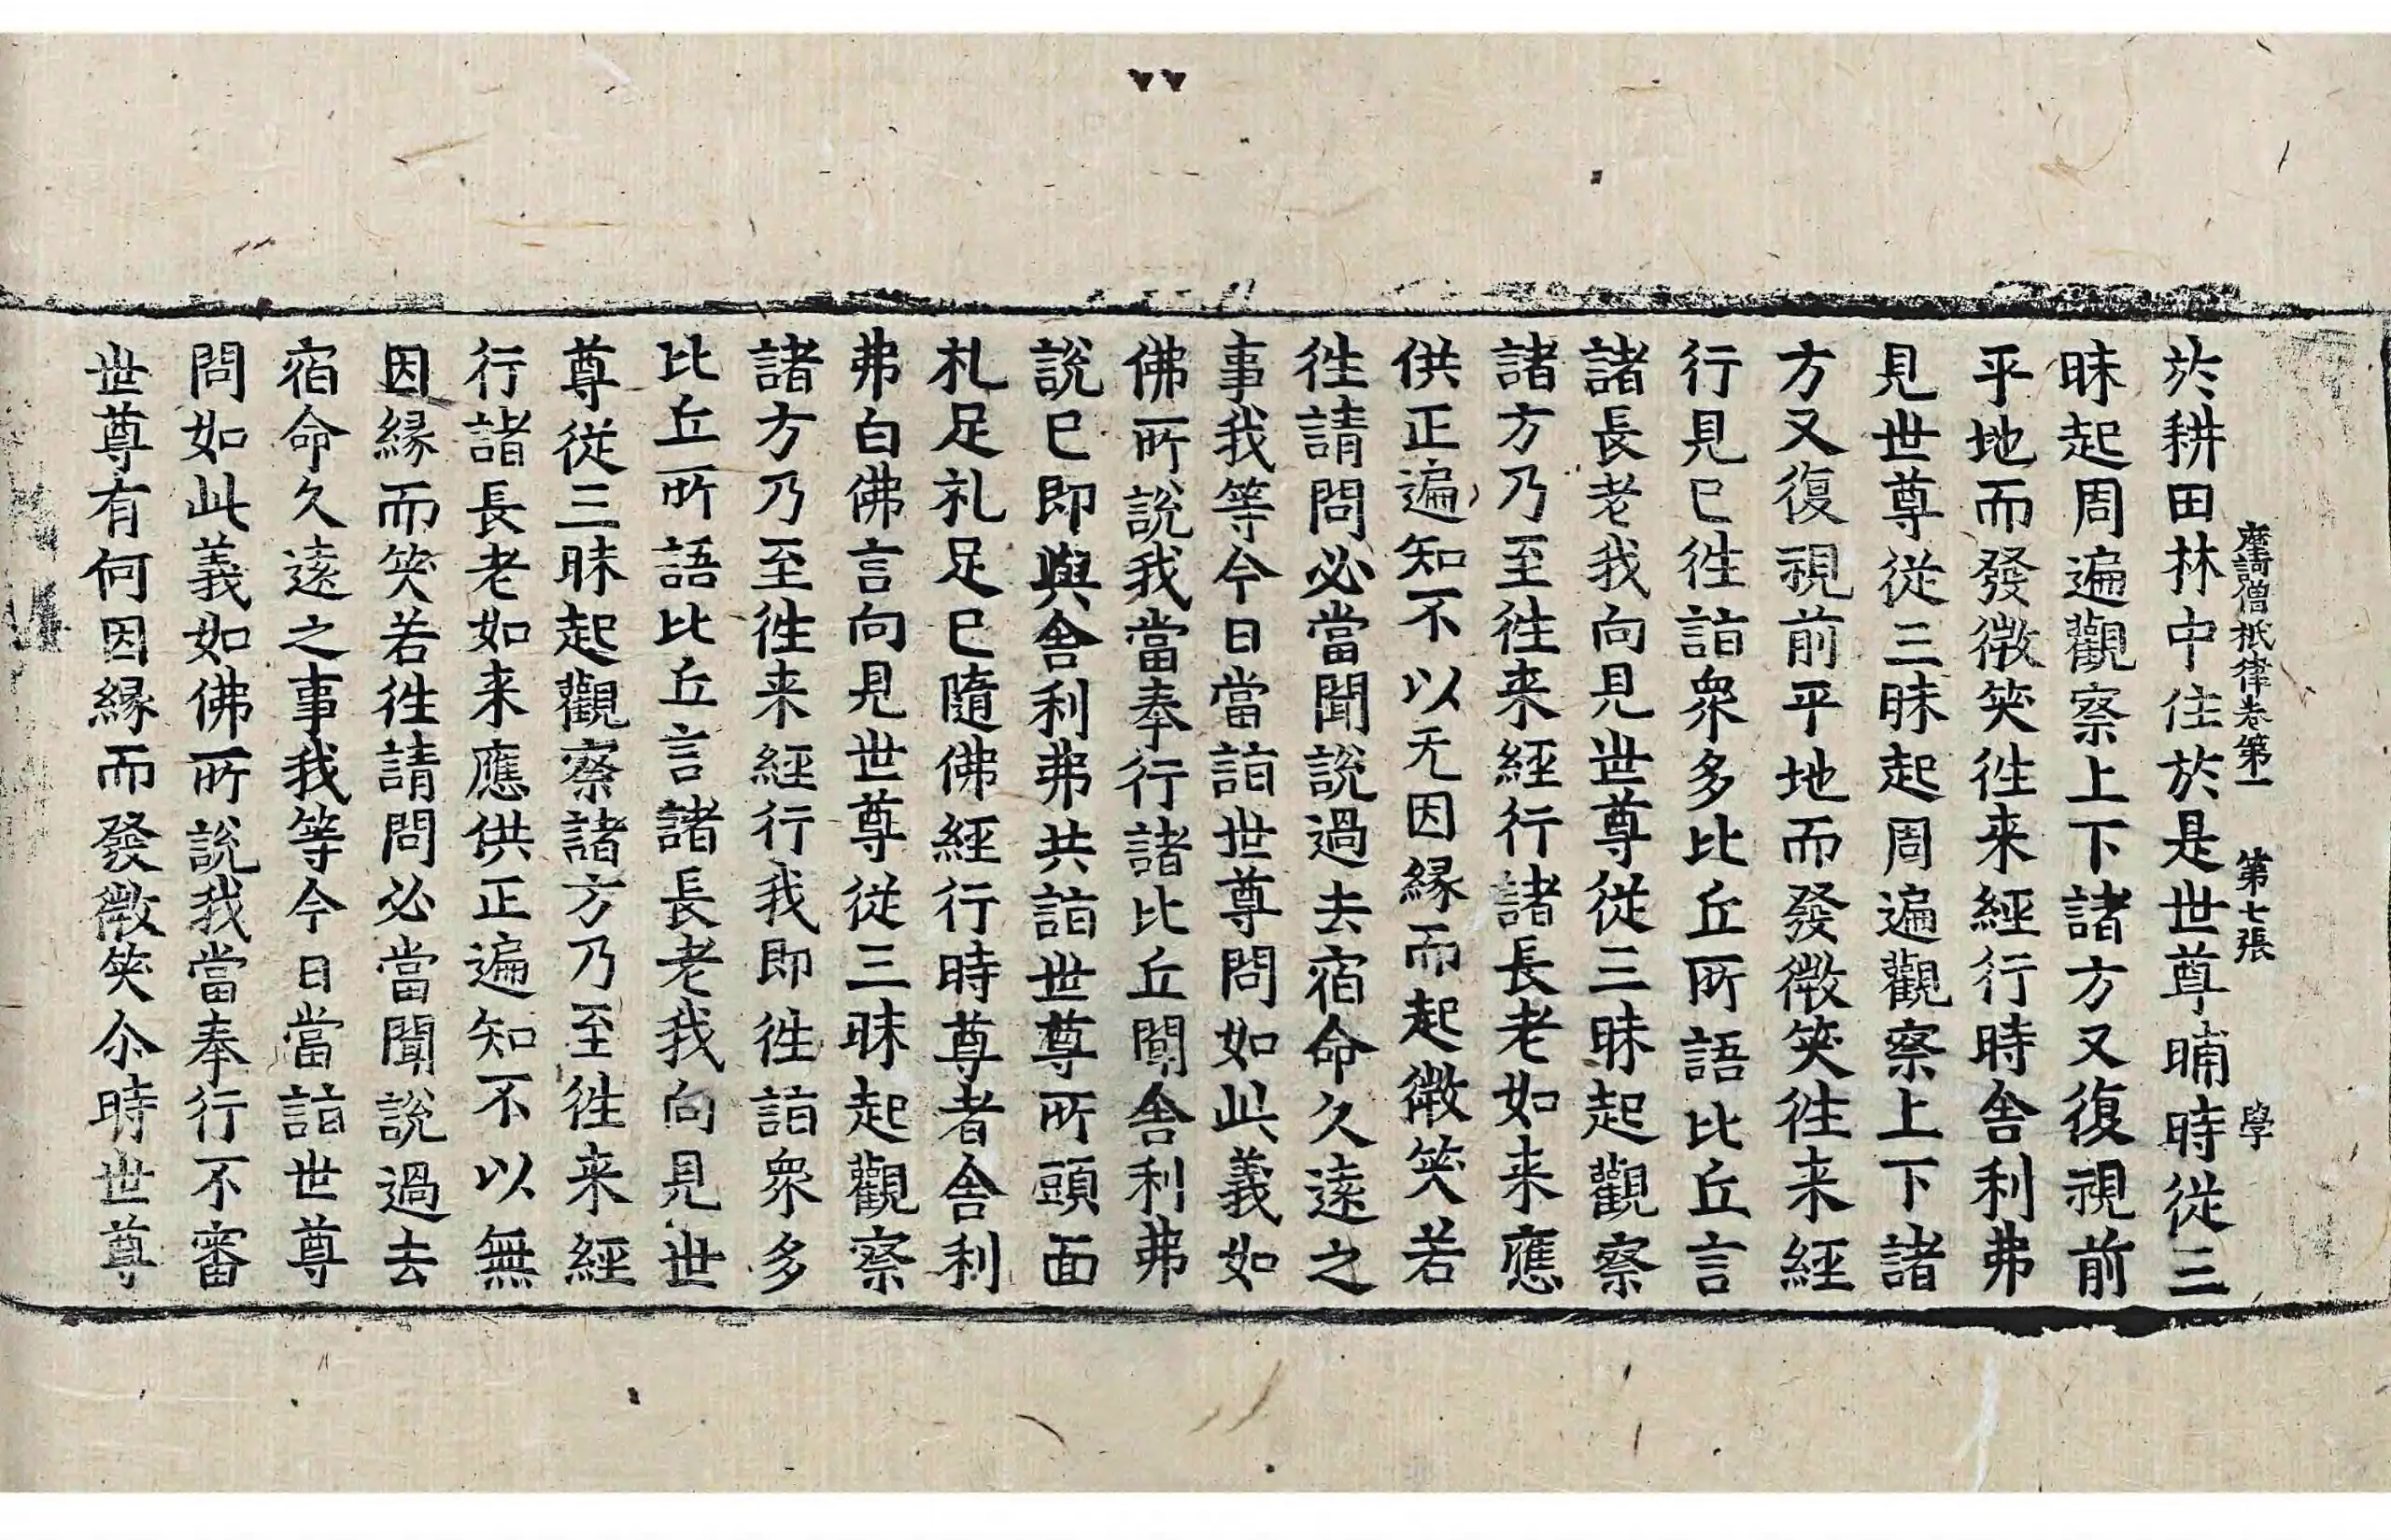 摩訶僧祇律卷第一 第七張 學
於耕田林中住於是世尊晡時從三
昧起周遍觀察上下諸方又復視前
平地而發微笑往来經行時舍利弗
見世尊從三昧起周遍觀察上下諸
方又復視前平地而發微笑往来經
行見已往詣衆多比丘所語比丘言
諸長老我向見世尊從三昧起觀察
諸方乃至往来經行諸長老如来應
供正遍知不以无因緣而起微笑若
往請問必當聞說過去宿命久遠之
事我等今日當詣世尊問如此義如
佛所說我當奉行諸比丘聞舍利弗
說已即與舍利弗共詣世尊所頭面
礼足礼足已隨佛經行時尊者舍利
弗白佛言向見世尊從三昧起觀察
諸方乃至往来經行我即往詣衆多
比丘所語比丘言諸長老我向見世
尊從三昧起觀察諸方乃至往来經
行諸長老如来應供正遍知不以無
因緣而笑若往請問必當聞說過去
宿命久遠之事我等今日當詣世尊
問如此義如佛所說我當奉行不審
世尊有何因緣而發微笑尒時世尊